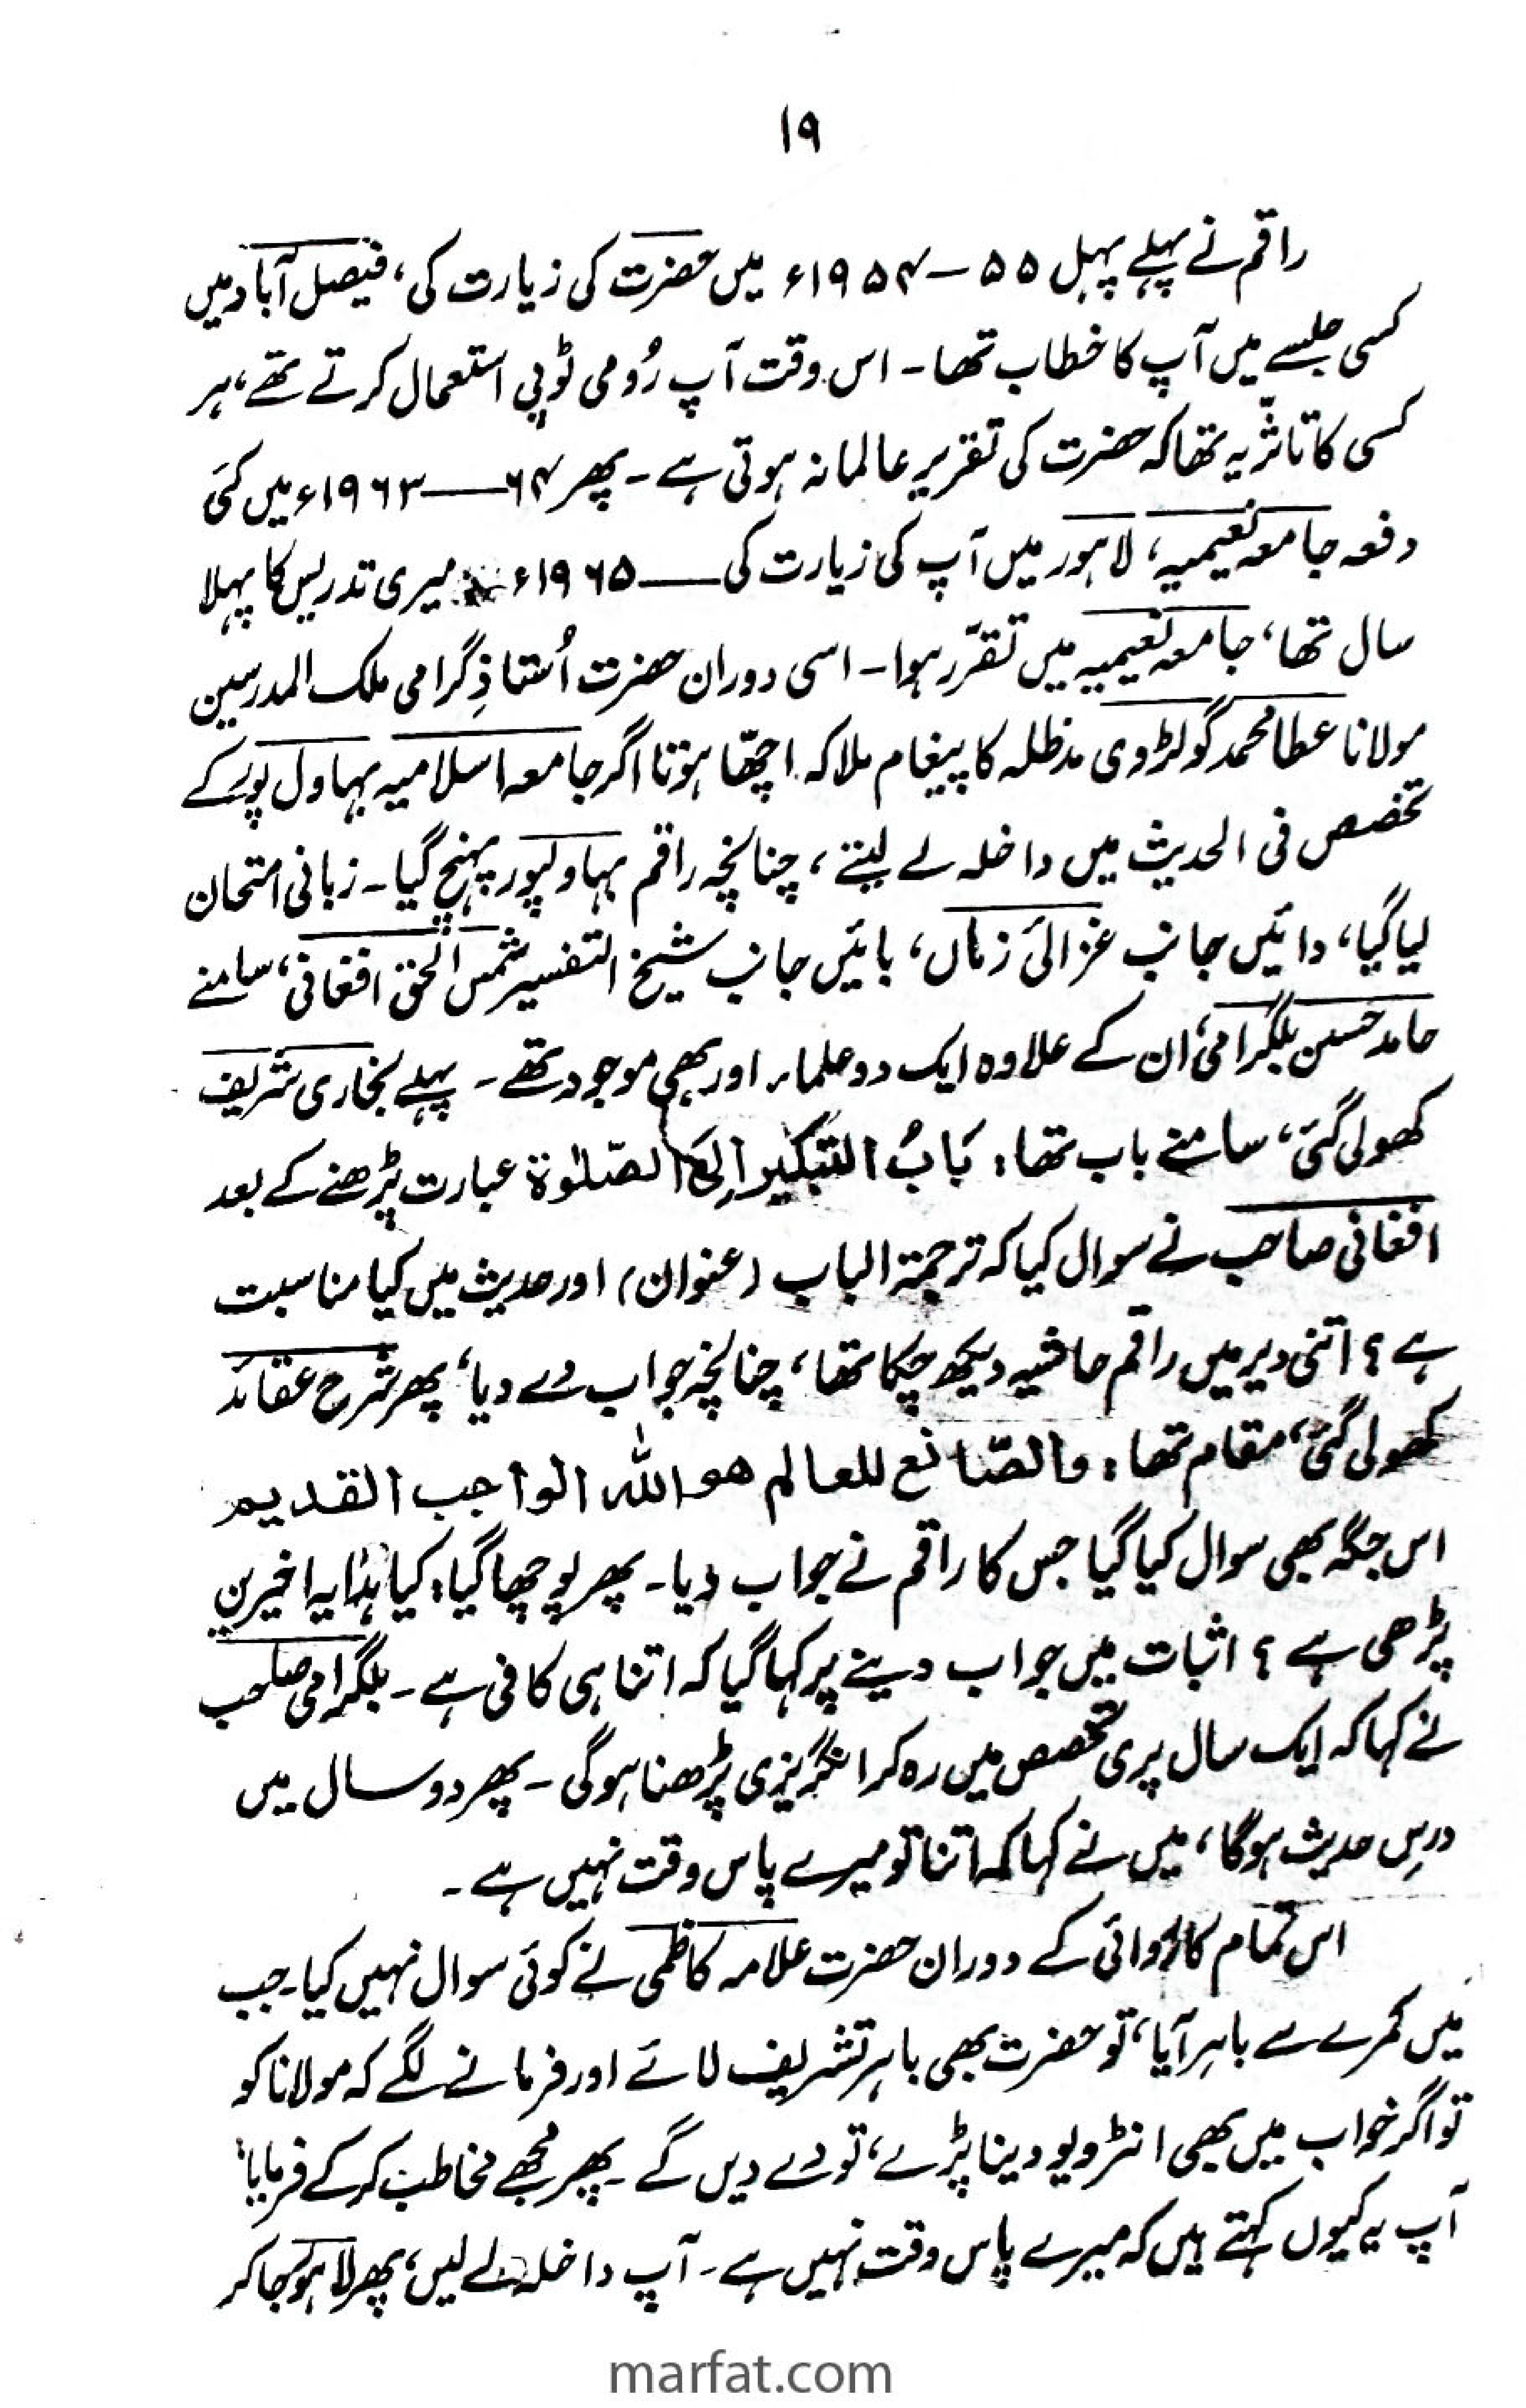 ۱۹
راقم نے پہلے پہل ۵۵ – ۱۹۵۴ء میں حضرت کی زیارت کی، فیصل آباد میں
کسی جلسے میں آپ کا خطاب تھا۔ اس وقت آپ رُومی ٹوپی استعمال کرتے تھے، ہر
کسی کا تاثّر یہ تھا کہ حضرت کی تقریر عالمانہ ہوتی ہے۔ پھر ۶۴ — ۱۹۶۳ء میں کئی
دفعہ جامعہ نعیمیہ، لاہور میں آپ کی زیارت کی — ۱۹۶۵ء میری تدریس کا پہلا
سال تھا، جامعہ نعیمیہ میں تقرّر ہوا۔ اسی دوران حضرت اُستاذِ گرامی ملک المدرسین
مولانا عطا محمد گولڑوی مدظلہ کا پیغام ملا کہ اچھّا ہوتا اگر جامعہ اسلامیہ بہاول پور کے
تخصص فی الحدیث میں داخلہ لے لیتے، چنانچہ راقم بہاولپور پہنچ گیا۔ زبانی امتحان
لیا گیا، دائیں جانب غزالیٔ زماں، بائیں جانب شیخ التفسیر شمس الحق افغانی، سامنے
حامد حسن بلگرامی، ان کے علاوہ ایک دو علماء اور بھی موجود تھے۔ پہلے بخاری شریف
کھولی گئی، سامنے باب تھا: بَابُ التَّبْکِیْرِ اِلَی الصّلٰوۃ عبارت پڑھنے کے بعد
افغانی صاحب نے سوال کیا کہ ترجمۃ الباب (عنوان) اور حدیث میں کیا مناسبت
ہے؟ اتنی دیر میں راقم حاشیہ دیکھ چکا تھا، چنانچہ جواب دے دیا، پھر شرح عقائد
کھولی گئی، مقام تھا: والصّانع للعالم هو اللّٰه الواجب القديم
اس جگہ بھی سوال کیا گیا جس کا راقم نے جواب دیا۔ پھر پوچھا گیا: کیا ہدایہ اخیرین
پڑھی ہے؟ اثبات میں جواب دینے پر کہا گیا کہ اتنا ہی کافی ہے۔ بلگرامی صاحب
نے کہا کہ ایک سال پری تخصص میں رہ کر انگریزی پڑھنا ہوگی۔ پھر دو سال میں
درسِ حدیث ہوگا، میں نے کہا کہ اتنا تو میرے پاس وقت نہیں ہے۔
اس تمام کارروائی کے دوران حضرت علامہ کاظمی نے کوئی سوال نہیں کیا۔ جب
میں کمرے سے باہر آیا، تو حضرت بھی باہر تشریف لائے اور فرمانے لگے کہ مولانا کو
تو اگر خواب میں بھی انٹرویو دینا پڑے، تو دے دیں گے۔ پھر مجھے مخاطب کر کے فرمایا،
آپ یہ کیوں کہتے ہیں کہ میرے پاس وقت نہیں ہے۔ آپ داخلہ لے لیں، پھر لاہور جا کر
marfat.com